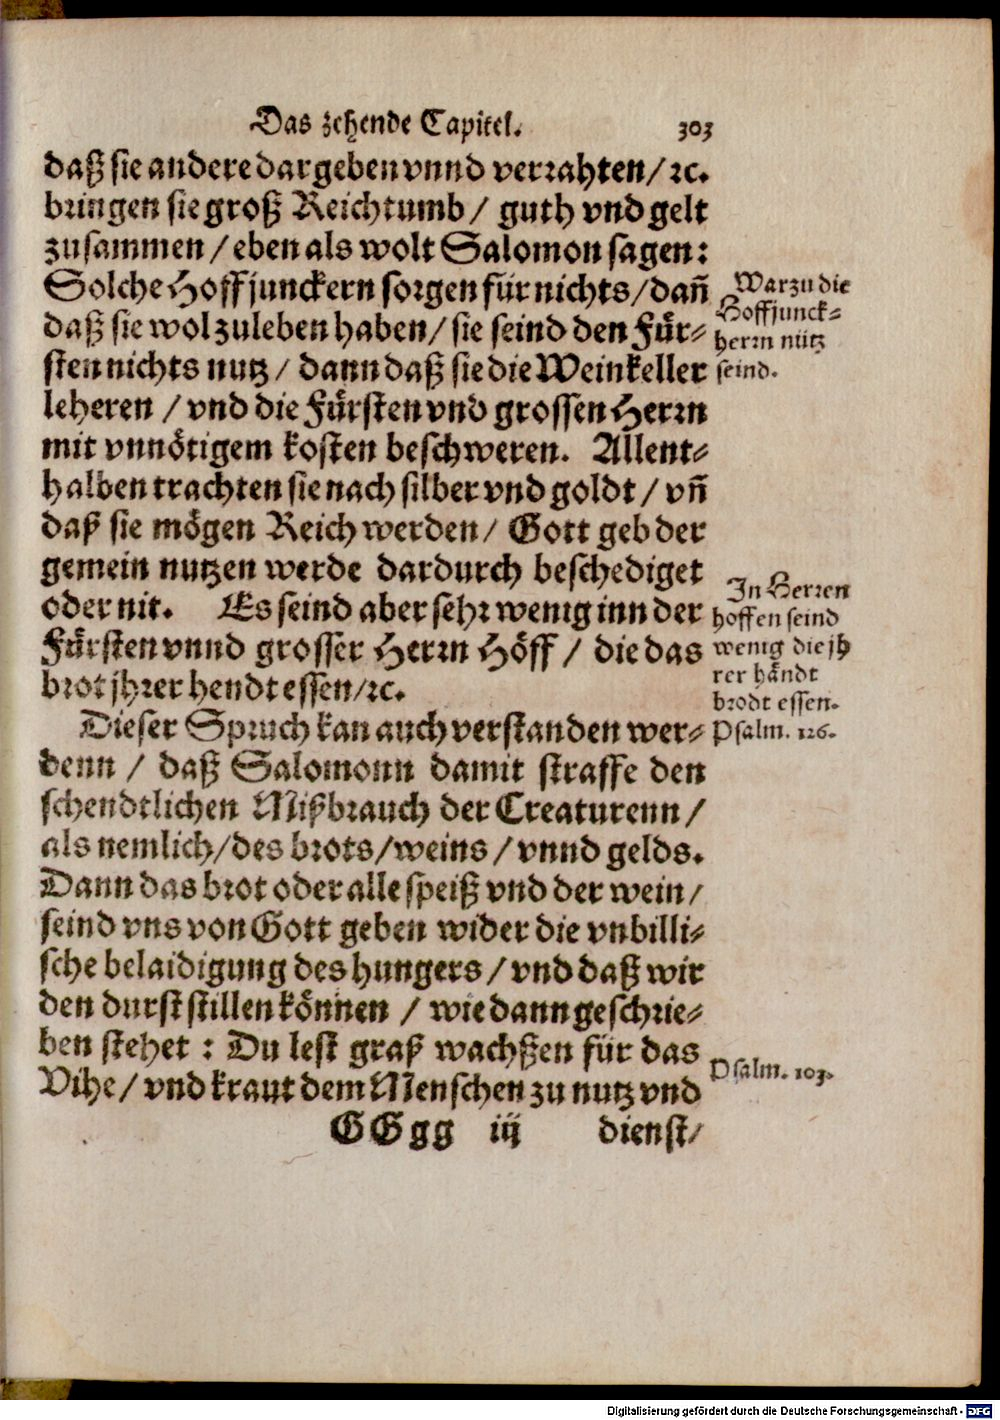 Das zehende Capitel. 303
daß sie andere dargeben vnnd verrahten/ ꝛc.
bringen sie groß Reichtumb/ guth vnd gelt
zusammen/ eben als wolt Salomon sagen:
Solche Hoffjunckern sorgen für nichts/ dañ
daß sie wol zuleben haben/ sie seind den Für⸗
sten nichts nutz/ dann daß sie die Weinkeller
leheren/ vnd die Fürsten vnd grossen Herrn
mit vnnötigem kosten beschweren. Allent⸗
halben trachten sie nach silber vnd goldt/ vñ
daß sie mögen Reich werden/ Gott geb der
gemein nutzen werde dardurch beschediget
oder nit. Es seind aber sehr wenig inn der
Fürsten vnnd grosser Herrn Höff/ die das
brot jhrer hendt essen/ ꝛc.
Dieser Spruch kan auch verstanden wer⸗
denn/ daß Salomonn damit straffe den
schendtlichen Mißbrauch der Creaturenn/
als nemlich/ des brots/ weins/ vnnd gelds.
Dann das brot oder alle speiß vnd der wein/
seind vns von Gott geben wider die vnbilli⸗
sche belaidigung des hungers/ vnd daß wir
den durst stillen können/ wie dann geschrie⸗
ben stehet: Du lest graß wachßen für das
Vihe/ vnd kraut dem Menschen zu nutz vnd
GGgg iij dienst/
Warzu die
Hoffjunck⸗
herrn nütz
seind.
In Herren
hoffen seind
wenig die jh
rer händt
brodt essen.
Psalm. 126.
Psalm. 103.
Digitalisierung gefördert durch die Deutsche Forschungsgemeinschaft - DFG